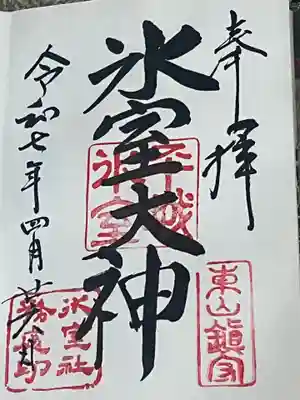 奉拝
東山鎮守
氷室大神
平城
氷室
令和七年四月
氷室社